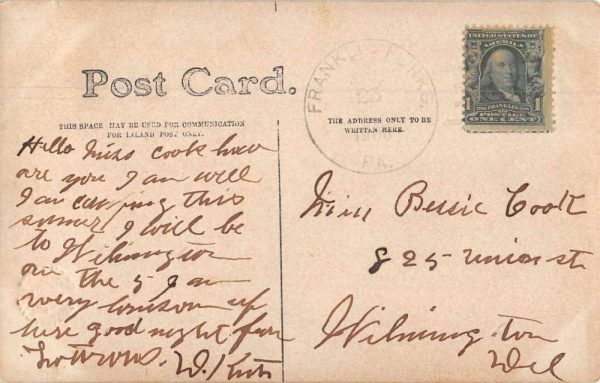 Post Card.
THIS SPACE MAY BE USED FOR COMMUNICATION
FOR INLAND POST ONLY.
THE ADDRESS ONLY TO BE
WRITTEN HERE.
FRANKL
PA.
UNITED STATES OF
AMERICA
1 FRANKLIN 1
POSTAGE
ONE CENT
Hello Miss Cook how
are you I am well
I am camping this
sumer I will be
to Wilmington
on the 5 I am
very lonsom up
here good night from
W.
Miss Bessie Cook
825 union st
Wilmington
Del